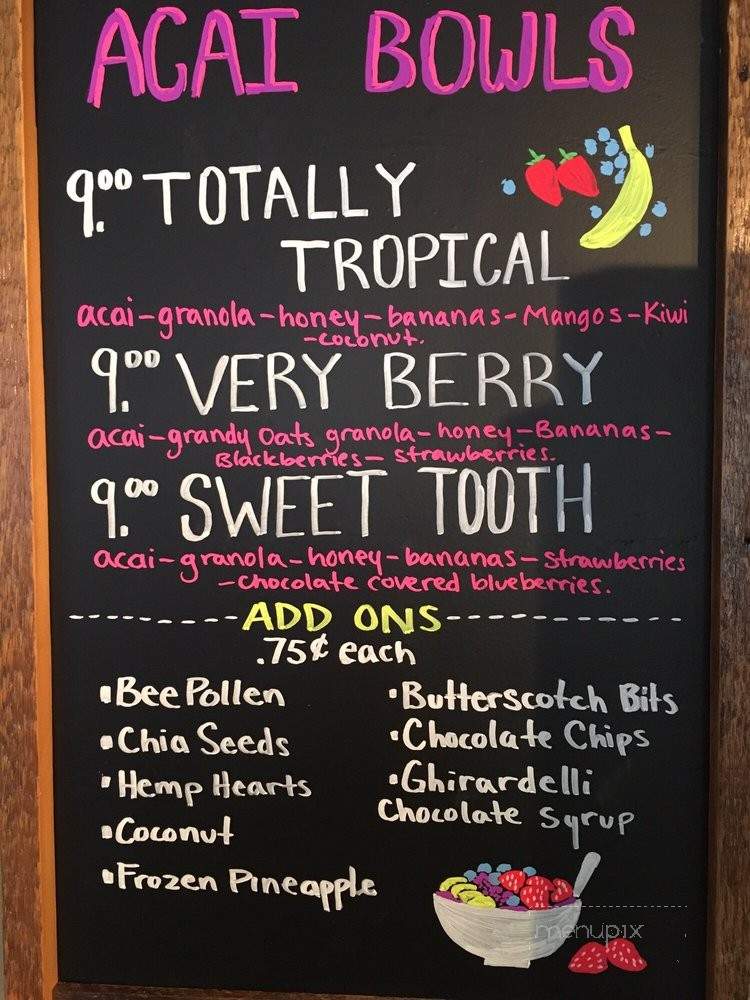 ACAI BOWLS
9.00 TOTALLY
TROPICAL
acai-granola-honey-bananas-Mangos-Kiwi
-coconut.
9.00 VERY BERRY
acai-grandy Oats granola-honey-Bananas-
Blackberries-strawberries.
9.00 SWEET TOOTH
acai-granola-honey-bananas-strawberries
-chocolate covered blueberries.
ADD ONS
.75¢ each
•Bee Pollen
•Chia Seeds
•Hemp Hearts
•Coconut
•Frozen Pineapple
•Butterscotch Bits
•Chocolate Chips
•Ghirardelli
Chocolate Syrup
menupix